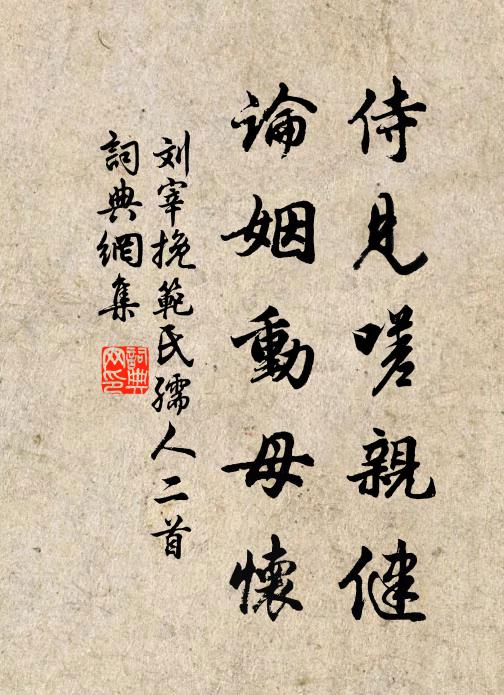 侍見嗟親健
論姻動母懷
刘宰挽範氏孺人二首
詞典網集
詞典网印